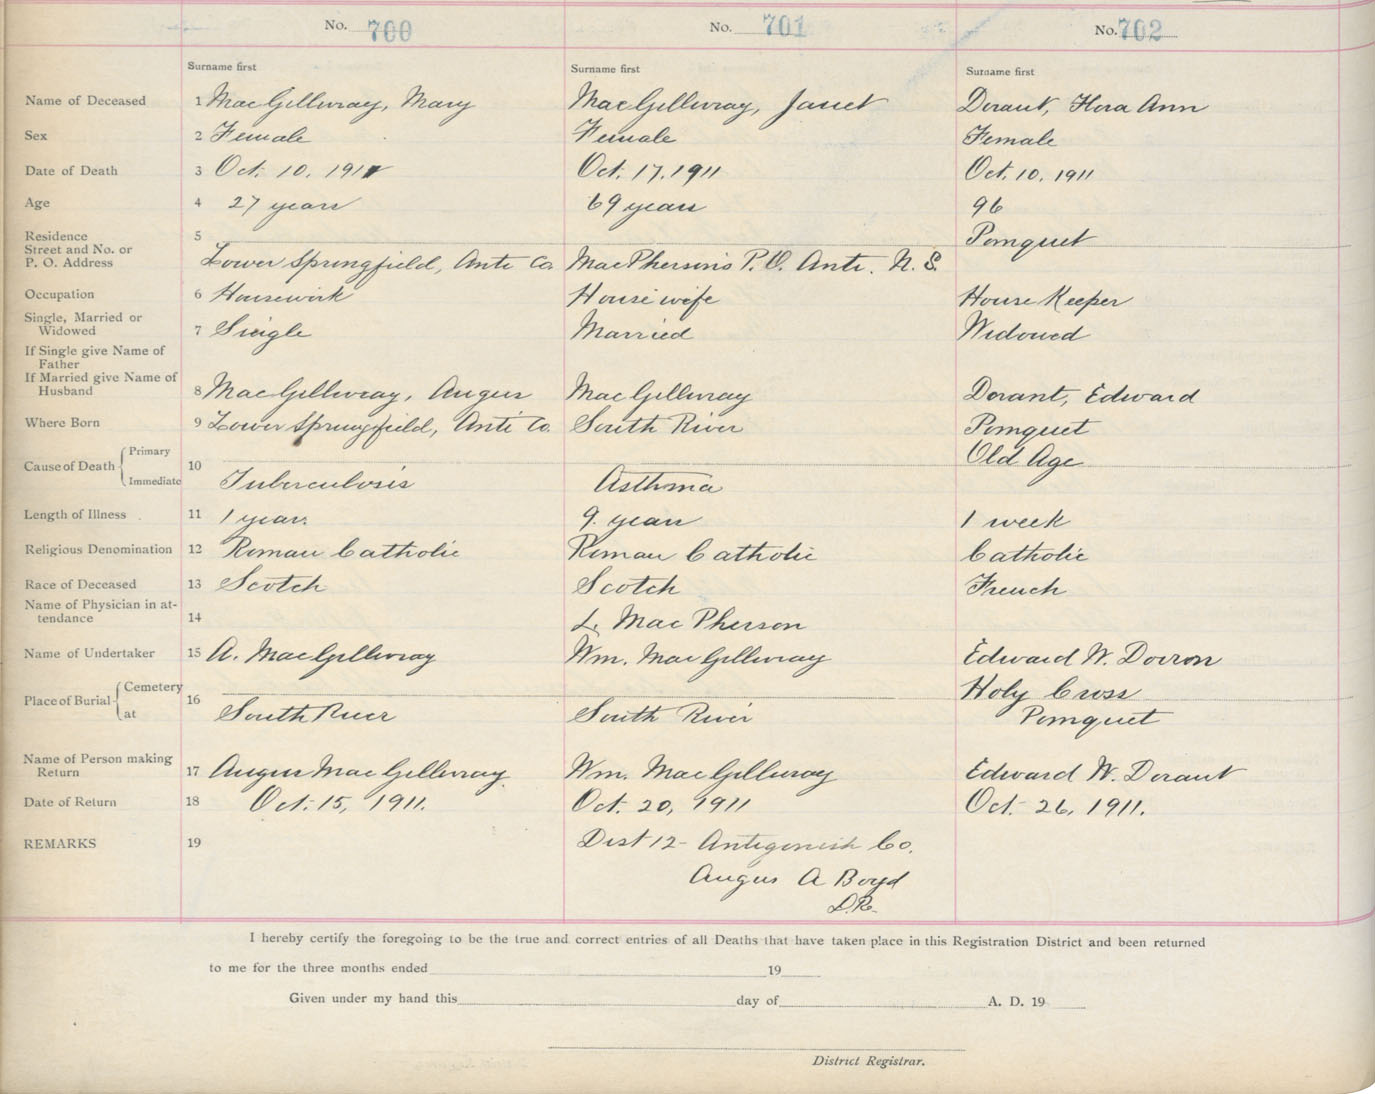 No. 700 No. 701 No. 702
Surname first Surname first Surname first
Name of Deceased 1 MacGillivray, Mary MacGillivray, Janet Dorant, Flora Ann
Sex 2 Female Female Female
Date of Death 3 Oct. 10, 1911 Oct. 17, 1911 Oct. 10, 1911
Age 4 27 years 69 years 96
Residence 5 Pomquet
Street and No. or
P. O. Address Lower Springfield, Anti Co. MacPherson's P.O. Anti. N.S.
Occupation 6 Housework Housewife House Keeper
Single, Married or
Widowed 7 Single Married Widowed
If Single give Name of
Father
If Married give Name of
Husband 8 MacGillivray, Angus MacGillivray Dorant, Edward
Where Born 9 Lower Springfield, Anti Co. South River Pomquet
Cause of Death Primary 10 Old Age
Immediate Tuberculosis Asthma
Length of Illness 11 1 year. 9. years 1 week
Religious Denomination 12 Roman Catholic Roman Catholic Catholic
Race of Deceased 13 Scotch Scotch French
Name of Physician in at-
tendance 14 L. MacPherson
Name of Undertaker 15 A. MacGillivray Wm. MacGillivray Edward W. Doiron
Place of Burial Cemetery 16 Holy Cross
at South River South River Pomquet
Name of Person making
Return 17 Angus MacGillivray. Wm. MacGillivray Edward W. Dorant
Date of Return 18 Oct. 15, 1911. Oct. 20, 1911 Oct. 26, 1911.
REMARKS 19 Dist 12 - Antigonish Co.
Angus A Boyd
D.R.
I hereby certify the foregoing to be the true and correct entries of all Deaths that have taken place in this Registration District and been returned
to me for the three months ended 19
Given under my hand this day of A. D. 19
District Registrar.